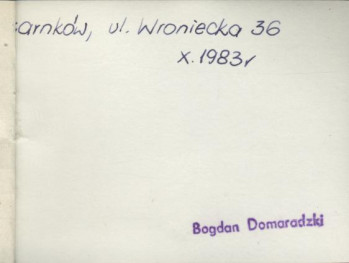 arnków, ul. Wroniecka 36
X.1983r
Bogdan Domaradzki